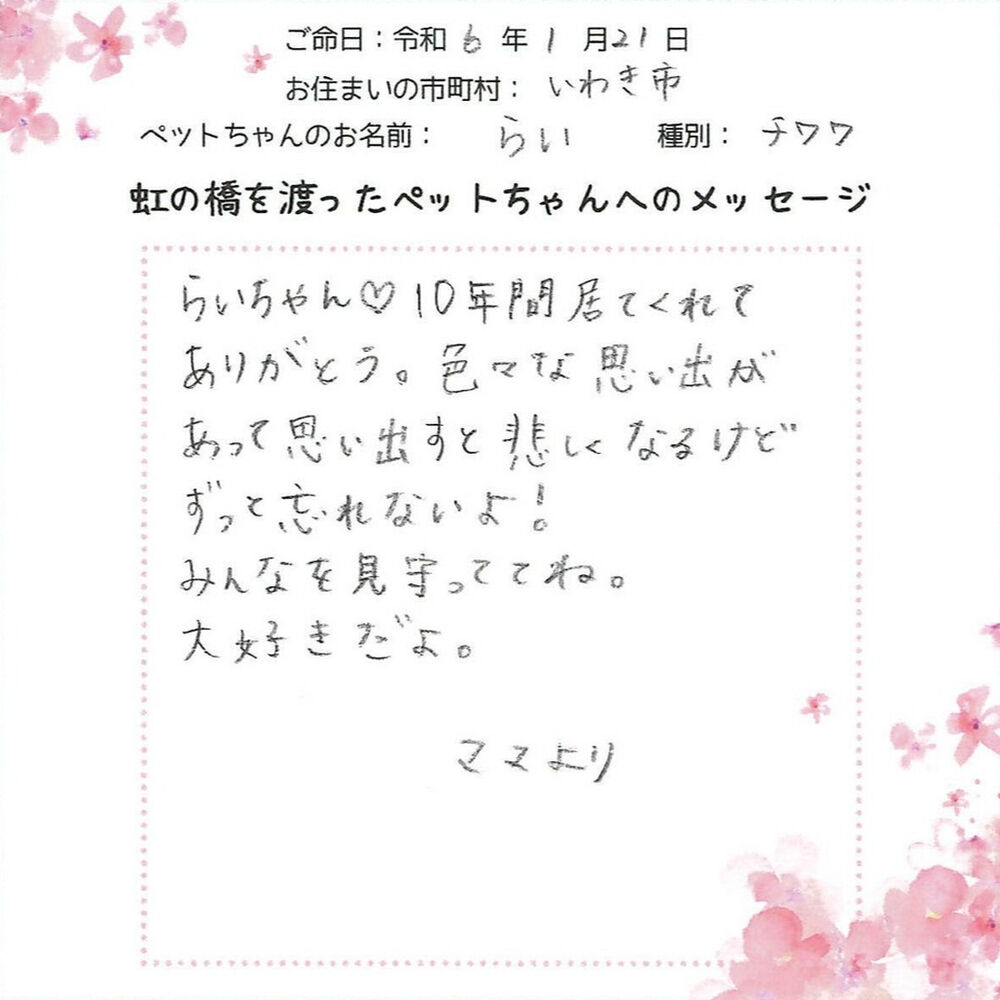 ご命日：令和 6 年 1 月21日
お住まいの市町村： いわき市
ペットちゃんのお名前： らい 種別： チワワ
虹の橋を渡ったペットちゃんへのメッセージ
らいちゃん♡10年間居てくれて
ありがとう。色々な思い出が
あって思い出すと悲しくなるけど
ずっと忘れないよ！
みんなを見守っててね。
大好きだよ。
ママより